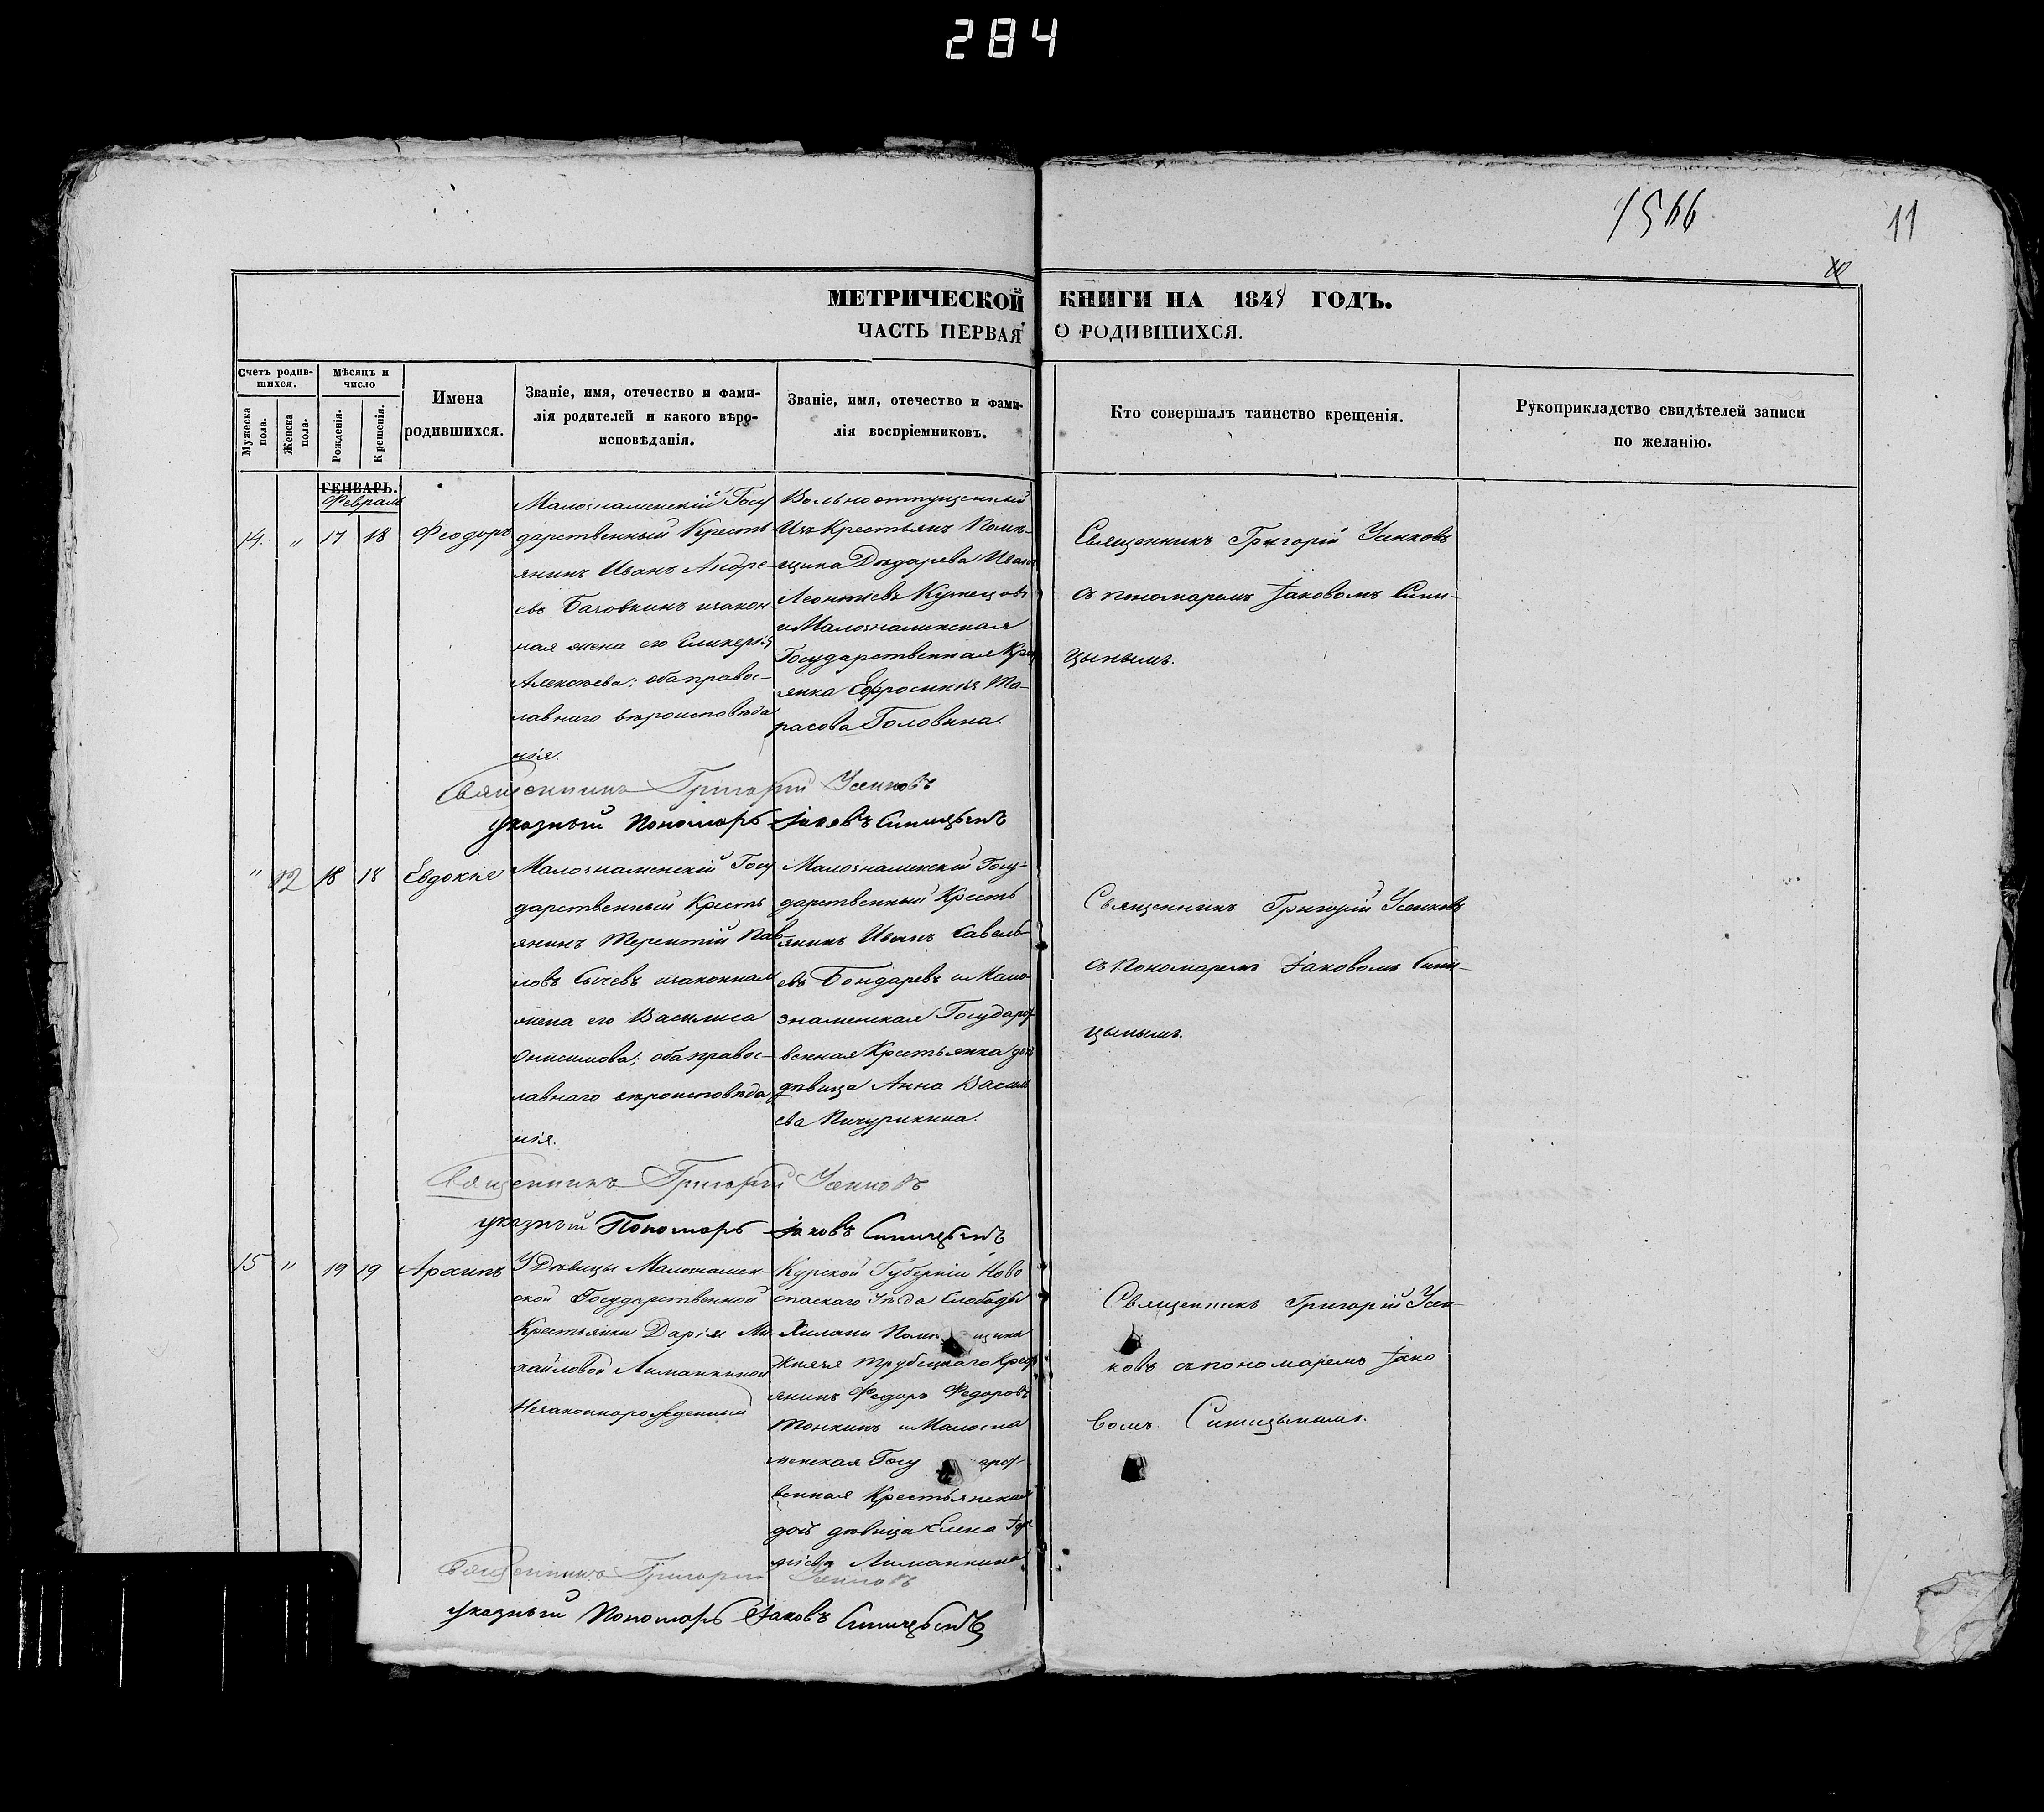 284
1566
11
МЕТРИЧЕСКОЙ КНИГИ НА 184 ГОДЪ.
ЧАСТЬ ПЕРВАЯ О РОДИВШИХСЯ.
Счетъ родив-
шихся.
Мужеска
пола.
Женска
пола.
Мѣсяцъ и
число
Рожденія.
Крещенія.
Имена
родившихся.
Званіе, имя, отечество и фами-
лія родителей и какого вѣро-
исповѣданія.
Званіе, имя, отечество и фами-
лія воспріемниковъ.
Кто совершалъ таинство крещенія.
Рукоприкладство свидѣтелей записи
по желанію.
ГЕНВАРЬ.
Февраль
14. " 17 18 Феодоръ
Малознаменскій Госу
дарственный Кресть
янинъ Иванъ Андре-
евъ изакон
ная жена его Гликерія
Алексѣева; оба правос-
лавнаго вѣроисповѣда
нія.
Вольноотпущенный
Изъ Крестьянъ Помѣ-
щика Иванъ
Леонтіевъ Кузнецовъ
и Малознаменская
Государственная Крес
янка Ефросинія Та-
расова Головина.
Священникъ Григорій Усенковъ
съ пономаремъ Іаковомъ Сини-
цынымъ.
Священникъ Григорій Усенковъ
указный Пономарь Іаковъ Синицынъ
" 12 18 18 Евдокія
Малознаменскій Госу
дарственный Кресть
янинъ Терентій Пав-
ловъ Сычевъ изаконная
жена его Василиса
Онисимова; оба правос-
лавнаго вѣроисповѣда
нія.
Малознаменскій Госу-
дарственный Кресть
янинъ Иванъ Савель-
евъ Бондаревъ и Мало
знаменская Государст
венная Крестьянка доч
дѣвица Анна Василь
ева Пичурикина.
Священникъ Григорій Усенковъ
съ Пономаремъ Іаковомъ Сини-
цынымъ.
Священникъ Григорій Усенковъ
указный Пономарь Іаковъ Синицынъ
15 " 19 19 Архипъ
У Дѣвицы Малознамен-
ской Государственной
Крестьянки Даріи Ми
хайловой Лиманкиной
Незаконнорожденный
Курской Губерніи Ново
оскаго Уѣзда Слободы
Халани Помѣщика
Князя Трубецкаго Крест
янинъ Федоръ Федоровъ
Тонкинъ и Малозна
менская Госу арст
венная Крестьянская
дочь дѣвица Елена
Лиманкина
Священникъ Григорій Усен-
ковъ съ пономаремъ Іако
вомъ Синицынымъ.
Священникъ Григорій Усенковъ
указный Пономарь Іаковъ Синицынъ